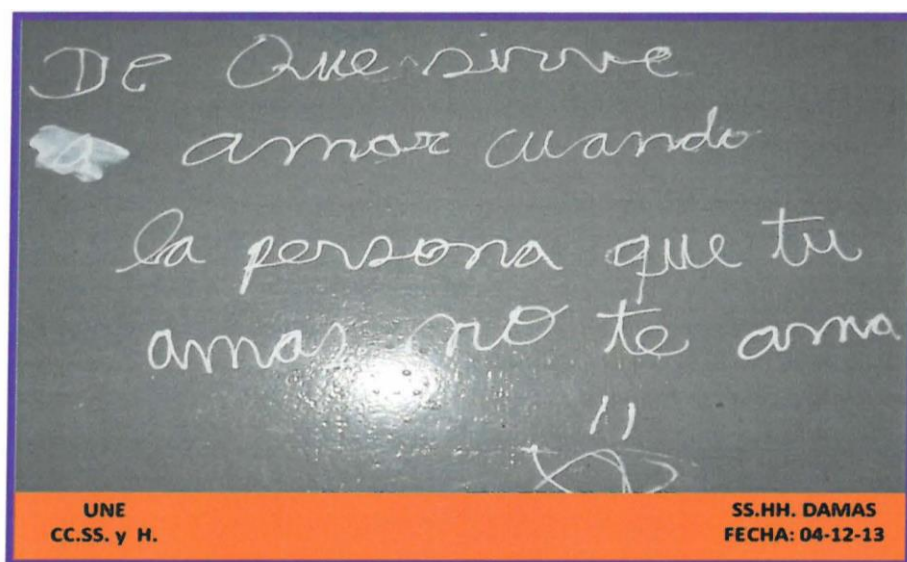 De Que sirve
amar cuando
la persona que tu
amas no te ama
UNE
CC.SS. y H.
SS.HH. DAMAS
FECHA: 04-12-13